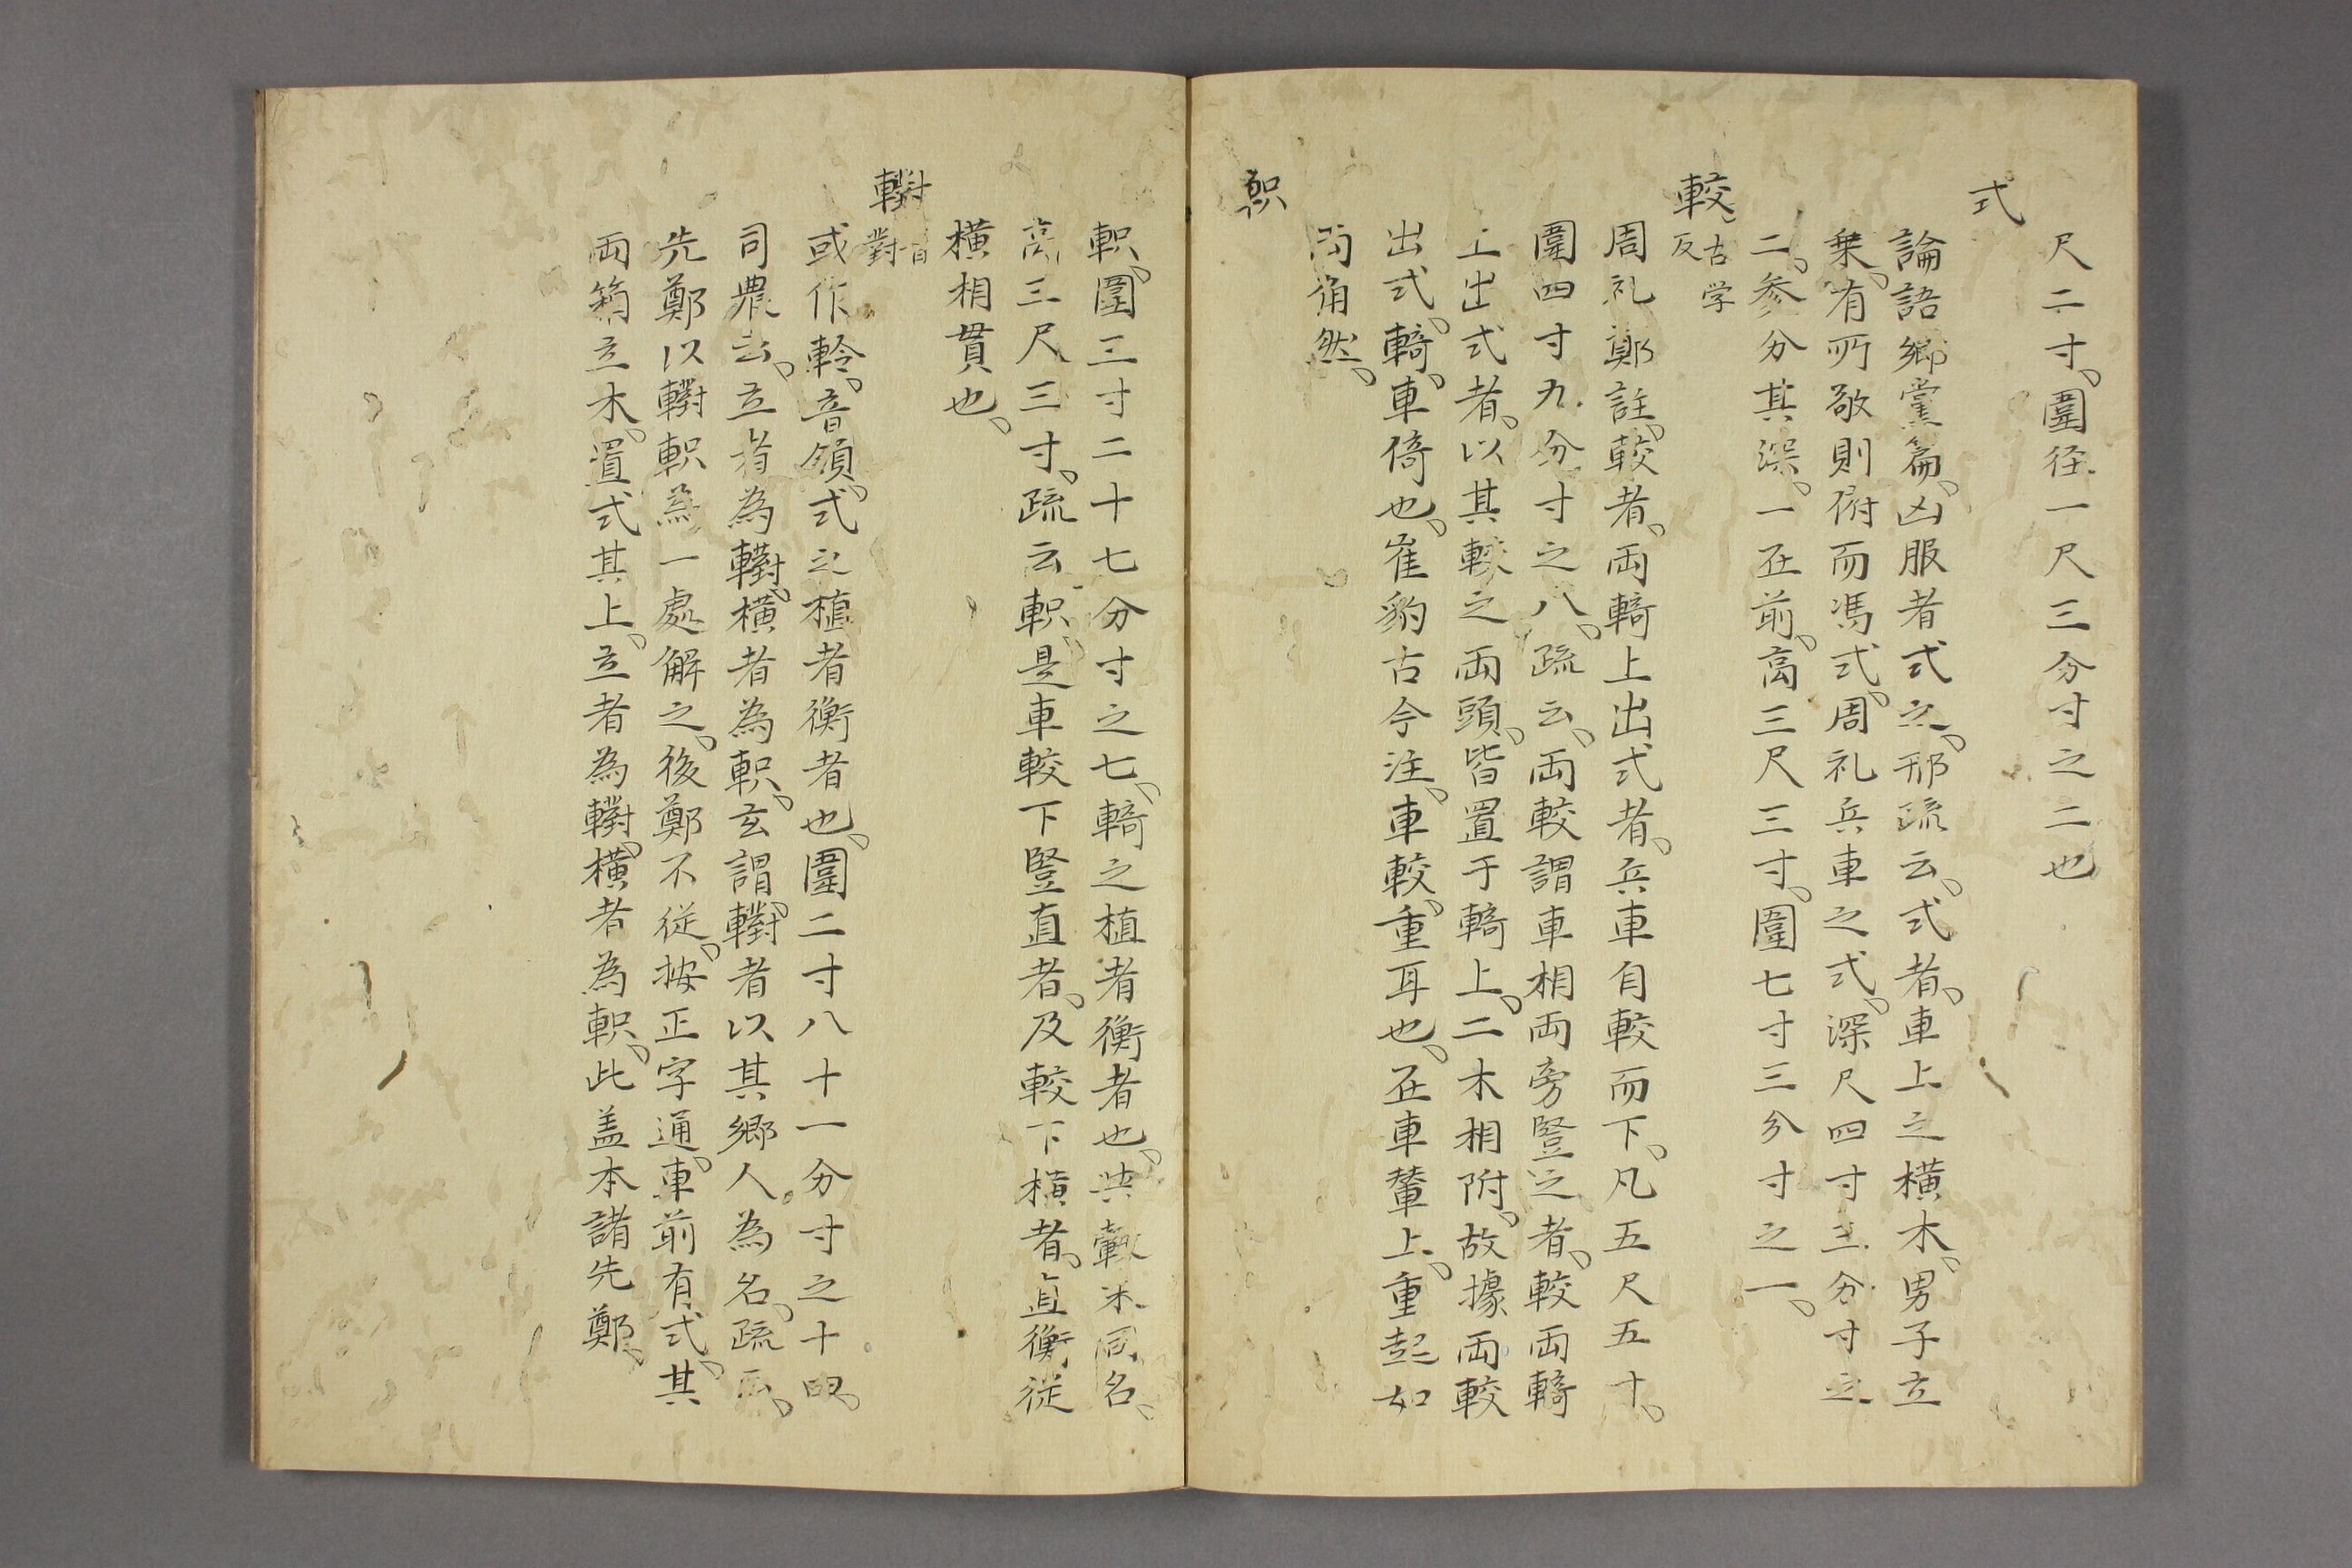 尺二寸、圍径一尺三分寸之二也
式
論語郷黨篇、凶服者式之、邢疏云、式者、車上之横木、男子立
乗、有所敬則俯而馮式、周礼兵車之式、深尺四寸三分寸之
二、参分其深、一在前、高三尺三寸、圍七寸三分寸之一、
較、古学反
周礼鄭註、較者、両輢上出式者、兵車自較而下、凡五尺五寸、
圍四寸九分寸之八、疏云、両較謂車相両旁豎之者、較両輢
上出式者、以其較之両頭、皆置于輢上、二木相附、故據両較
出式、輢、車倚也、崔豹古今注、車較、重耳也、在車輦上、重起如
両角然、
軹
軹、圍三寸二十七分寸之七、輢之植者衡者也、與轂末同名、
高三尺三寸、疏云軹、是車較下豎直者、及較下横者、直衡従
横相貫也、
轛 音對
或作軨、音領、式之植者衡者也、圍二寸八十一分寸之十四、
司農云、立者為轛、横者為軹、玄謂、轛者以其郷人為名、疏云、
先鄭以轛軹為一處解之、後鄭不従、按正字通、車前有式、其
両箱立木、置式其上、立者為轛、横者為軹、此盖本諸先鄭、